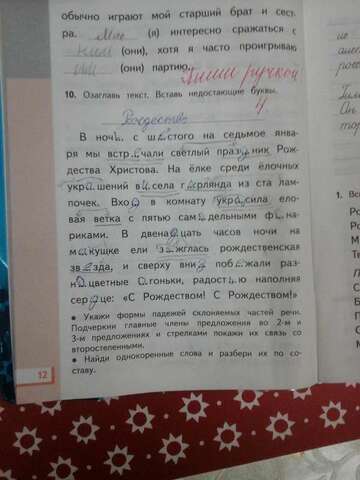 обычно играют мой старший брат и сест-
ра. Мне (я) интересно сражаться с
ними (они), хотя я часто проигрываю
им (они) партию.
Пиши ручкой
10. Озаглавь текст. Вставь недостающие буквы.
4.
Рождество
В ночь с шестого на седьмое янва-
ря мы встречали светлый праздник Рож-
дества Христова. На ёлке среди ёлочных
украшений висела гирлянда из ста лам-
почек. Вход в комнату украсила ело-
вая ветка с пятью самодельными фона-
риками. В двенадцать часов ночи на
макушке ели зажглась рождественская
звезда, и сверху вниз побежали раз-
ноцветные огоньки, радостью наполняя
сердце: «С Рождеством! С Рождеством!»
• Укажи формы падежей склоняемых частей речи.
Подчеркни главные члены предложения во 2-м и
3-м предложениях и стрелками покажи их связь со
второстепенными.
• Найди однокоренные слова и разбери их по со-
ставу.
12